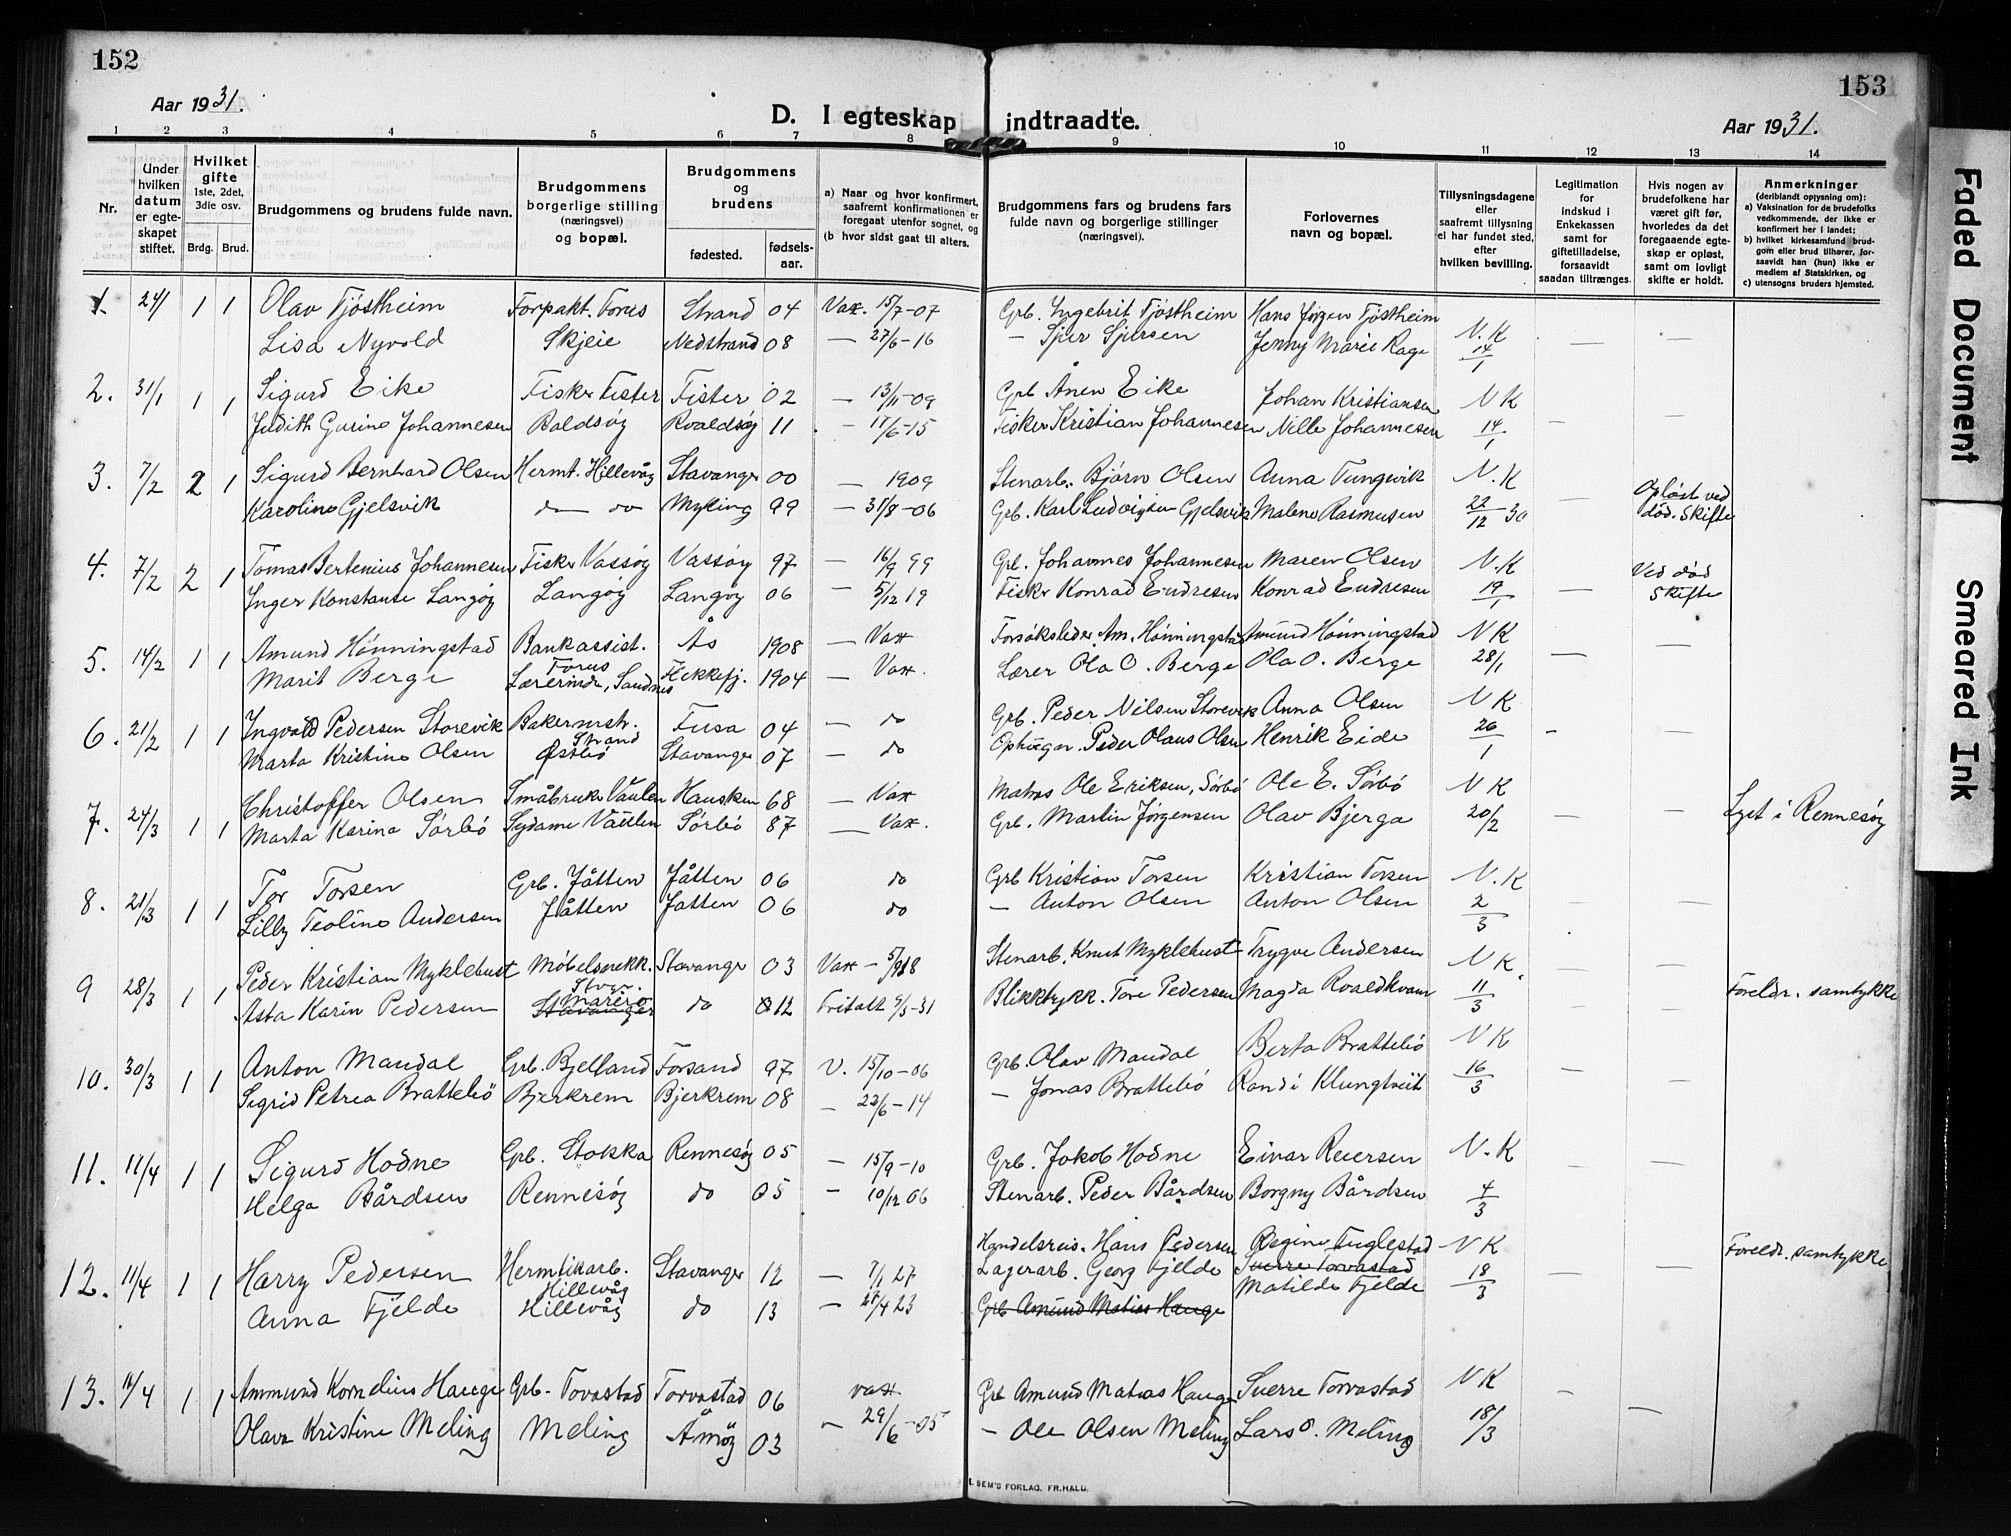 152
153
Aar 1931.
D. I egteskap indtraadte.
Aar 1931.
1 2 3 4 5 6 7 8 9 10 11 12 13 14
Nr.
Under hvilken datum er egteskapet stiftet.
Hvilket gifte
1ste, 2det, 3die osv.
Brdg. Brud.
Brudgommens og brudens fulde navn.
Brudgommens borgerlige stilling (næringsvei) og bopæl.
Brudgommens og brudens
fødested. fødsels-aar.
a) Naar og hvor konfirmert, saafremt konfirmationen er foregaat utenfor sognet, og
(b hvor sidst gaat til alters.
Brudgommens fars og brudens fars fulde navn og borgerlige stillinger (næringsvei).
Forlovernes navn og bopæl.
Tillysningsdagene eller saafremt tillysning ei har fundet sted, efter hvilken bevilling.
Legitimation for indskud i Enkekassen samt for giftetilladelse, forsaavidt saadan tiltrænges.
Hvis nogen av brudefolkene har været gift før, hvorledes da det foregaaende egteskap er opløst, samt om lovligt skifte er holdt.
Anmerkninger
(deriblandt opjysning om):
a) Vaksination for de brudefolks vedkommende, der ikke er konfirmert her i landet;
b) hvilket kirkesamfund brudgom eller brud tilhører, forsaavidt han (hun) ikke er medlem af Statskirken, og
c) utensogns bruders hjemsted.
1. 24/1 1 1 Olav Tjöstheim Forpakt. Forus Strand 04 Vax. 15/7-07 Grb. Ingebrit Tjöstheim Hans Jörgen Tjöstheim N.K
Lisa Nyvold Skjeie Nedstrand 08 — 27/6-16 — Sjur Sjursen Jenny Marie Rage 14/1 — —
2. 31/1 1 1 Sigurd Eike Fisker Fister Fister 02 — 13/11-09 Grb Ånen Eike Johan Kristiansen N K
Judith Gurine Johannesen Roaldsöy 11 — 17/6-15 Fisker Kristian Johannesen Nille Johannesen 14/1 — —
3. 7/2 2 1 Sigurd Bernhard Olsen Hermt. Hillevåg Stavanger 00 — 1909 Stenarb. Bjørn Olsen Anna Tungevik N.K
Karoline Gjelsvik do do Myking 99 — 31/8-06 Grb. Karl Ludvigsen Gjelsvik Malene Rasmusen 22/12-30 — Opløst ved död. Skifte
4. 7/2 2 1 Tomas Bertenius Johannesen Fisker Vassöy Vassöy 97 — 16/9 99 Grb. Johannes Johannesen Maren Olsen N.K
Inger Konstanse Langöy Langöy Langöy 06 — 5/12 19 Fisker Konrad Endresen Konrad Endresen 19/1 — Ved död Skifte
5. 14/2 1 1 Amund Hönningstad Bankassist. Forus Ås 1908 — Vax Forsöksleder Am. Hönningstad Amund Hönningstad N K
Marit Berge Lærerinde, Sandnes Flekkefj. 1904 — Vax. Lærer Ola O. Berge Ola O. Berge 28/1 — —
6. 21/2 1 1 Ingvald Pedersen Storevik Bakermstr. Strand Fusa 04 — do Grb. Peder Nilsen Storevik Anna Olsen N K
Marta Kristine Olsen Østbö Stavanger 07 — do Peder Olaus Olsen Henrik Eide 26/1 — —
7. 24/3 1 1 Christoffer Olsen Småbruker Vaulen Hausken 68 — Vax Matros Ole Eriksen, Sörbö Ole E. Sörbö N K
Marta Karina Sörbö Sydame Vaulen Sörbö 87 — Vax. Grb. Martin Jörgensen Olav Bjerga 20/2 — Lyst i Rennesöy
8. 21/3 1 1 Tor Torsen Grb. Jåtten Jåtten 06 do Grb Kristian Torsen Kristian Torsen N.K
Lilly Teoline Andersen Jåtten Jatten 06 do — Anton Olsen Anton Olsen 2/3 — —
9 28/3 1 1 Peder Kristian Myklebust Möbelsnekk. Stavanger 03 Vax — 5/9 18 Stenarb. Knut Myklebust Trygve Andersen N K.
Asta Karin Pedersen Stavanger do 12 Fritatt 9/3-31 Blikktrykk. Tore Pedersen Magda Roaldkvam 11/3 — — Foreldr. samtykke
10. 30/3 1 1 Anton Maudal Grb. Bjelland Forsand 97 V. 15/10-06 Grb. Olav Maudal Berta Brattebö N K
Sigrid Petrea Brattebö Bjerkrem Bjerkrem 08 — 22/6-14 — Jonas Brattebö Randi Klungtveit 16/3 — —
11. 11/4 1 1 Sigurd Hodne Grb. Stokka Rennesöy 05 — 15/9-10 Grb. Jakob Hodne Einar Reiersen N.K
Helga Bårdsen Rennesöy do 05 — 10/12 06 Stenarb. Peder Bårdsen Borgny Bårdsen 4/3 — —
12. 11/4 1 1 Harry Pedersen Hermtikarb. Hillevåg Stavanger 12 — 7/1 27 Handelsreis. Hans Pedersen Regine Fuglestad N K Foreldr. samtykke
Anna Fjelde Hillevåg do 13 — 28/4 23 Lagerarb. Georg Fjelde Sverre Torvastad Matilde Fjelde 18/3 — —
Grb Amund Matias Hauge
13. 11/4 1 1 Ammund Kornelius Hauge Grb. Tovastad Torvastad 06 vax Grb Amund Matias Hauge Sverre Torvastad N K
Olava Kristine Meling Meling Åmöy 03 — 29/6-05 — Ole Olsen Meling Lars O. Meling 18/3 — —
SEM'S FORLAG. FR.HALD.
Faded Document
Smeared Ink